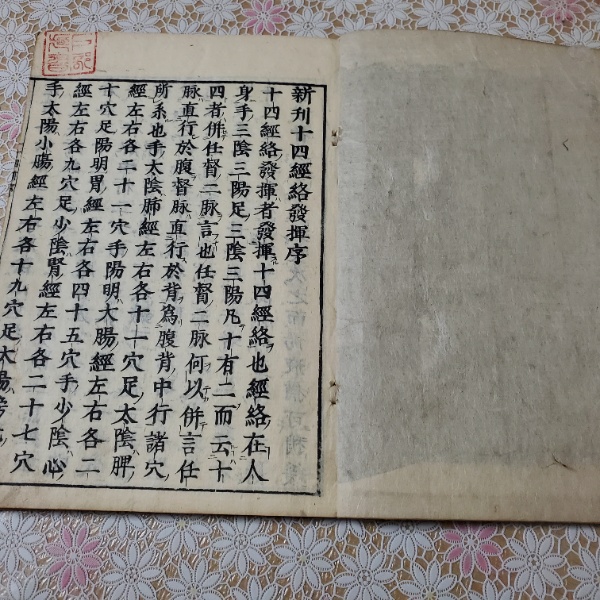 新刊十四經絡發揮序
十四經絡發揮者發揮十四經絡也經絡在人
身手三陰三陽足三陰三陽凡十有二而云十
四者併任督二脉言也任督二脉何以併言任
脉直行於腹督脉直行於背為腹背中行諸穴
所系也手太陰肺經左右各十一穴足太陰脾
經左右各二十一穴手陽明大腸經左右各二
十穴足陽明胃經左右各四十五穴手少陰心
經左右各九穴足少陰腎經左右各二十七穴
手太陽小腸經左右各十九穴足太陽